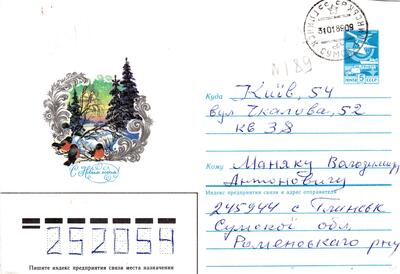 31.01.89.09
N189
ПОЧТА 5 СССР
Куда Київ, 54
вул Чкалова, 52
кв 38
Кому Маняку Володимиру
Антоновичу
Индекс предприятия связи и адрес отправителя
245944 с Глинськ
Сумской обл.
Роменського р-ну
С Новым годом
252054
Пишите индекс предприятия связи места назначения